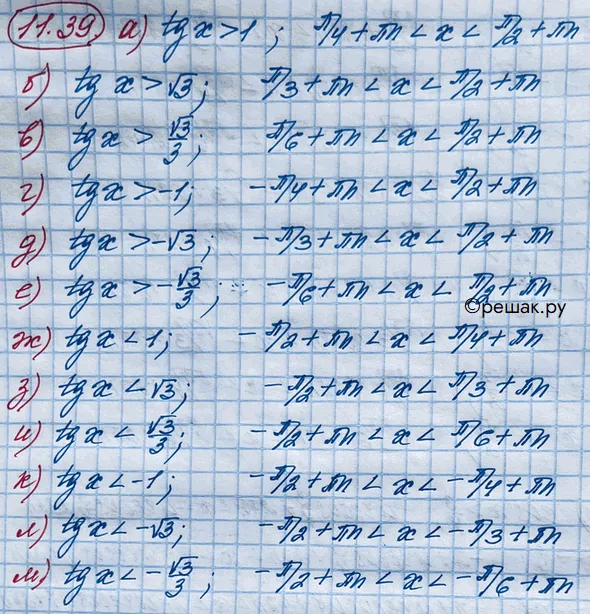 11.39. а) tg x > 1; π/4 + πn < x < π/2 + πn
б) tg x > √3; π/3 + πn < x < π/2 + πn
в) tg x > √3/3; π/6 + πn < x < π/2 + πn
г) tg x > -1; -π/4 + πn < x < π/2 + πn
д) tg x > -√3; -π/3 + πn < x < π/2 + πn
е) tg x > -√3/3; -π/6 + πn < x < π/2 + πn
©решак.ру
ж) tg x < 1; -π/2 + πn < x < π/4 + πn
з) tg x < √3; -π/2 + πn < x < π/3 + πn
и) tg x < √3/3; -π/2 + πn < x < π/6 + πn
к) tg x < -1; -π/2 + πn < x < -π/4 + πn
л) tg x < -√3; -π/2 + πn < x < -π/3 + πn
м) tg x < -√3/3; -π/2 + πn < x < -π/6 + πn